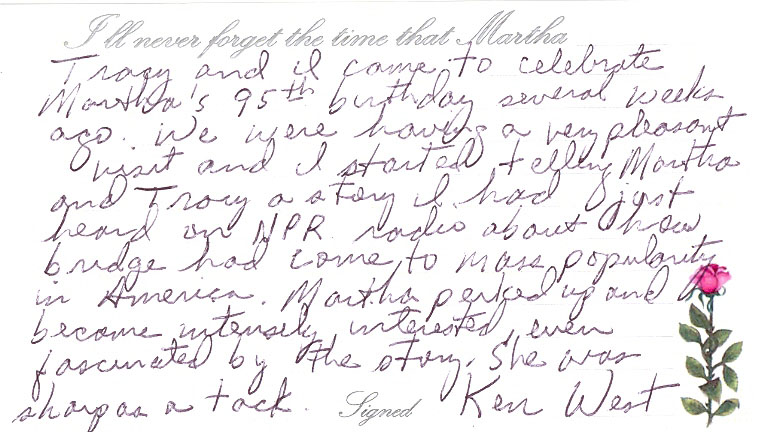 I'll never forget the time that Martha
Tracy and I came to celebrate
Martha's 95th birthday several weeks
ago. We were having a very pleasant
visit and I started telling Martha
and Tracy a story I had just
heard on NPR radio about how
bridge had come to mass popularity
in America. Martha perked up and
became intensely interested, even
fascinated by the story. She was
sharp as a tack. Signed Ken West